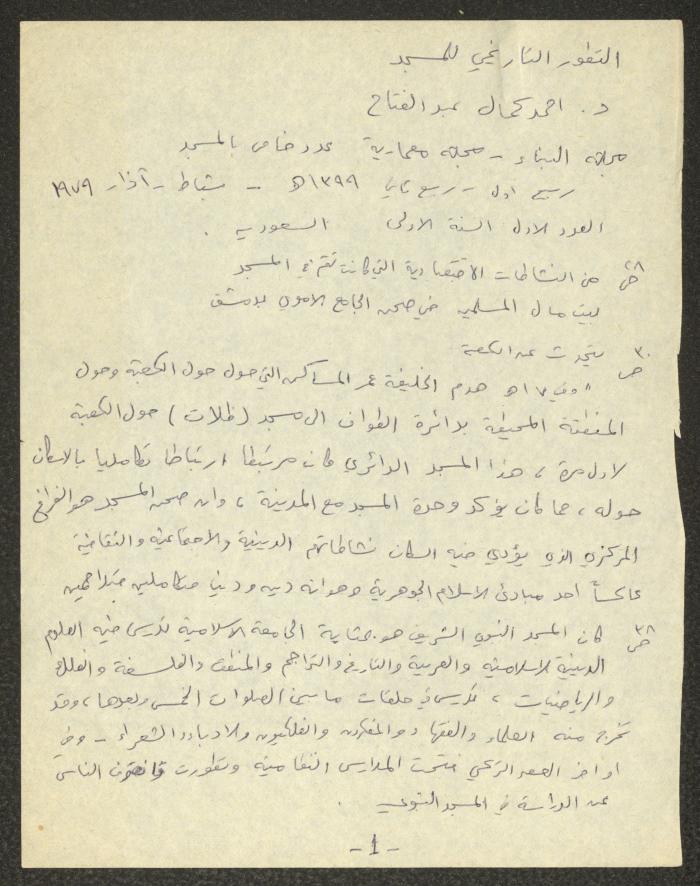 التطور التاريخي للمسجد
د. احمد كمال عبد الفتاح
مجلة البناء - مجلة معمارية عدد خاص بالمسجد
ربيع اول - ربيع ثاني ١٣٩٩ هـ - شباط - آذار ١٩٧٩
العدد الاول السنة الاولى السعودية .
ص ٢٨ من النشاطات الاقتصادية التي كانت تتم في المسجد
بيت مال المسلمين في صحن الجامع الاموي بدمشق
ص ٣٠ يتحدث عن الكعبة
" وفي ١٧ هـ هدم الخليفة عمر المساكن التي حول الكعبة وحول
المنطقة المحيطة بدائرة الطواف الى مسجد (ظلات) حول الكعبة
لاول مرة ، هذا المسجد الدائري كان مرتبطا ارتباطا تكامليا بالاسكان
حوله ، مما كان يؤكد وحدة المسجد مع المدينة ، وان صحن المسجد هو الفراغ
المركزي الذي يؤدي فيه السكان نشاطاتهم الدينية والاجتماعية والثقافية
عاكساً احد مبادئ الاسلام الجوهرية وهو انه دين ودنيا متكاملين متلاحمين
ص ٣٨ كان المسجد النبوي الشريف هو بمثابة الجامعة الاسلامية تدرس فيه العلوم
الدينية الاسلامية والعربية والتاريخ والتراجم والمنطق والفلسفة والفلك
والرياضيات ، تدرس في حلقات ما بين الصلوات الخمس وبعدها ، وقد
تخرج منه العلماء والفقهاء والمفكرون والفلكيون والادباء والشعراء - وفي
اواخر العهد التركي فتحت المدارس النظامية وتطورت فانصرف الناس
عن الدراسة في المسجد النبوي .
- 1 -